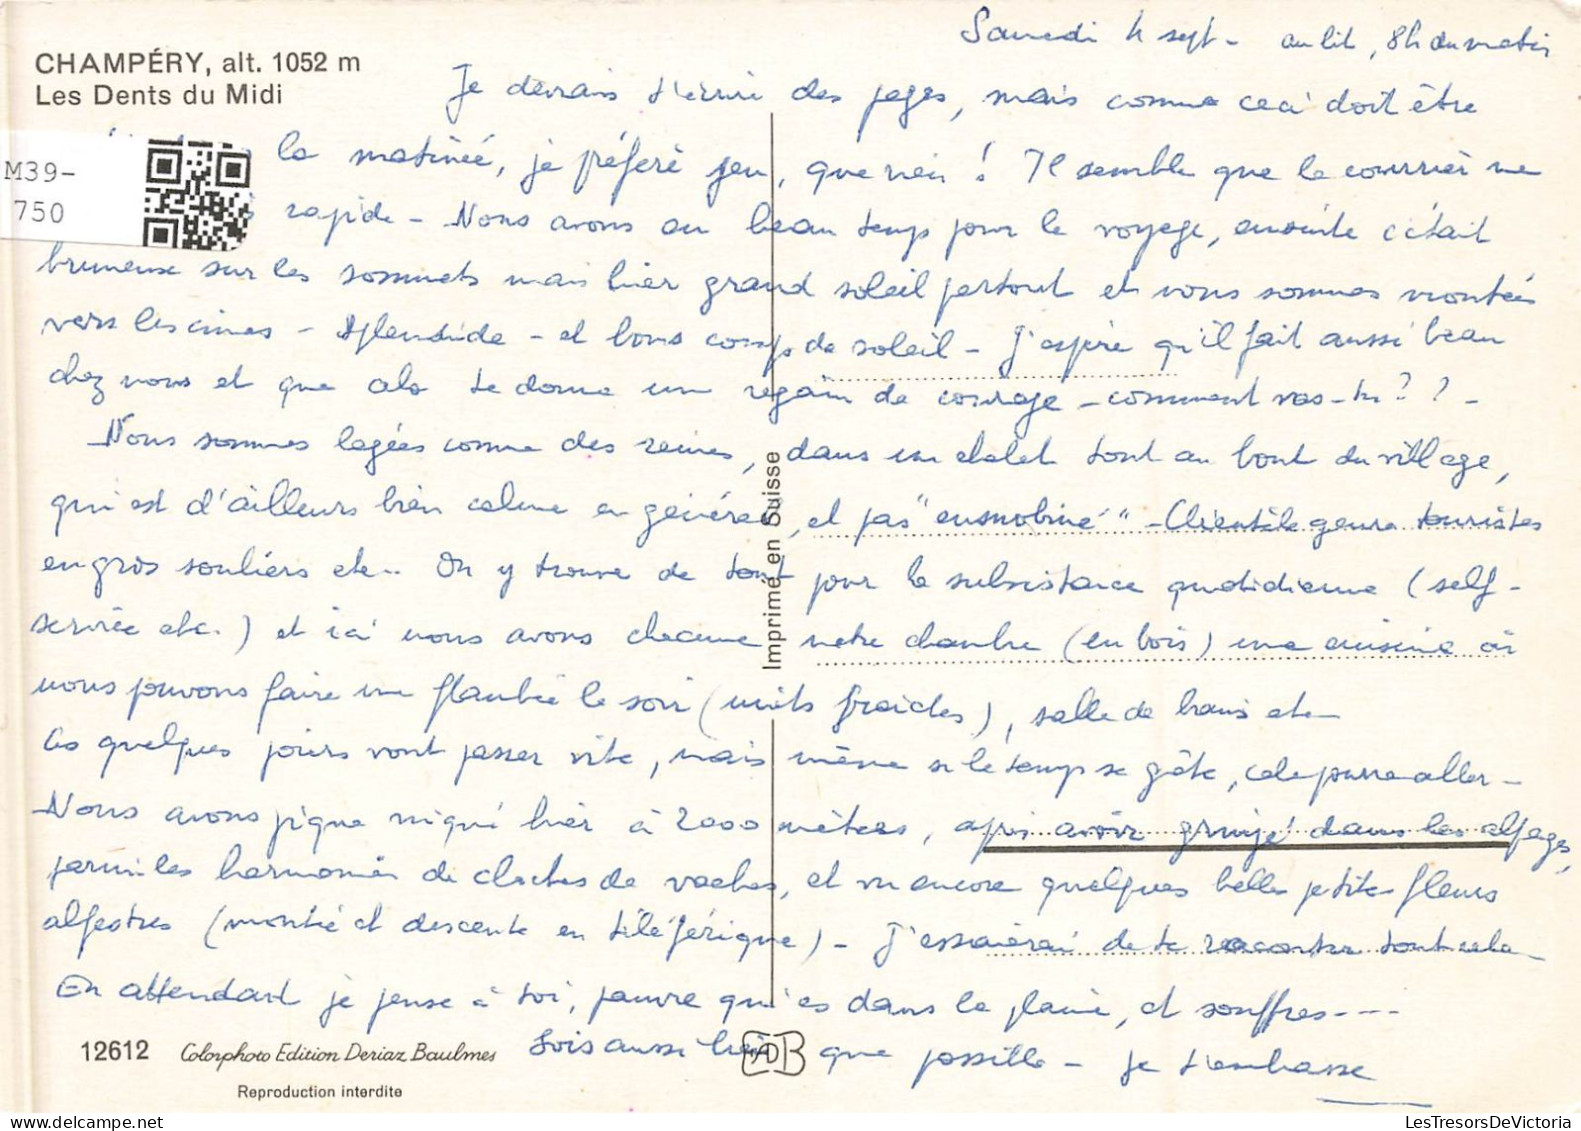 Samedi 4 sept - au lit, 8h du matin
CHAMPÉRY, alt. 1052 m
Les Dents du Midi
Je devrais t'écrire des pages, mais comme ceci doit être
la matinée, je préfère peu, que rien ! Il semble que le courrier ne
M39-
750
rapide - Nous avons eu beau temps pour le voyage, ensuite c'était
brumeux sur les sommets mais hier grand soleil partout et nous sommes montées
vers les cimes - Splendide - et bons coups de soleil - J'espère qu'il fait aussi beau
chez vous et que cela te donne un regain de courage - comment vas-tu ? ? -
Nous sommes logées comme des reines, dans un chalet tout au bout du village,
qui est d'ailleurs bien calme en général, et pas " - Clientèle genre touristes
en gros souliers etc.. On y trouve de tout pour la subsistance quotidienne (self-
service etc.) et ici nous avons chacune notre chambre (en bois) une cuisine où
nous pouvons faire une flambée le soir (nuits fraîches), salle de bains etc -
Ces quelques jours vont passer vite, mais même si le temps se gâte, cela pourra aller -
Nous avons pique niqué hier à 2000 mètres, après avoir grimpé dans les alpages,
parmi les harmonies de cloches de vaches, et vu encore quelques belles petites fleurs
alpestres (montée et descente en téléférique) - J'essaierai de te raconter tout cela -
En attendant je pense à toi, pauvre qui es dans la plaine, et souffres----
Sois aussi bien que possible - Je t'embrasse
12612 Colorphoto Edition Deriaz Baulmes
Reproduction interdite
Imprimé en Suisse
LesTresorsDeVictoria